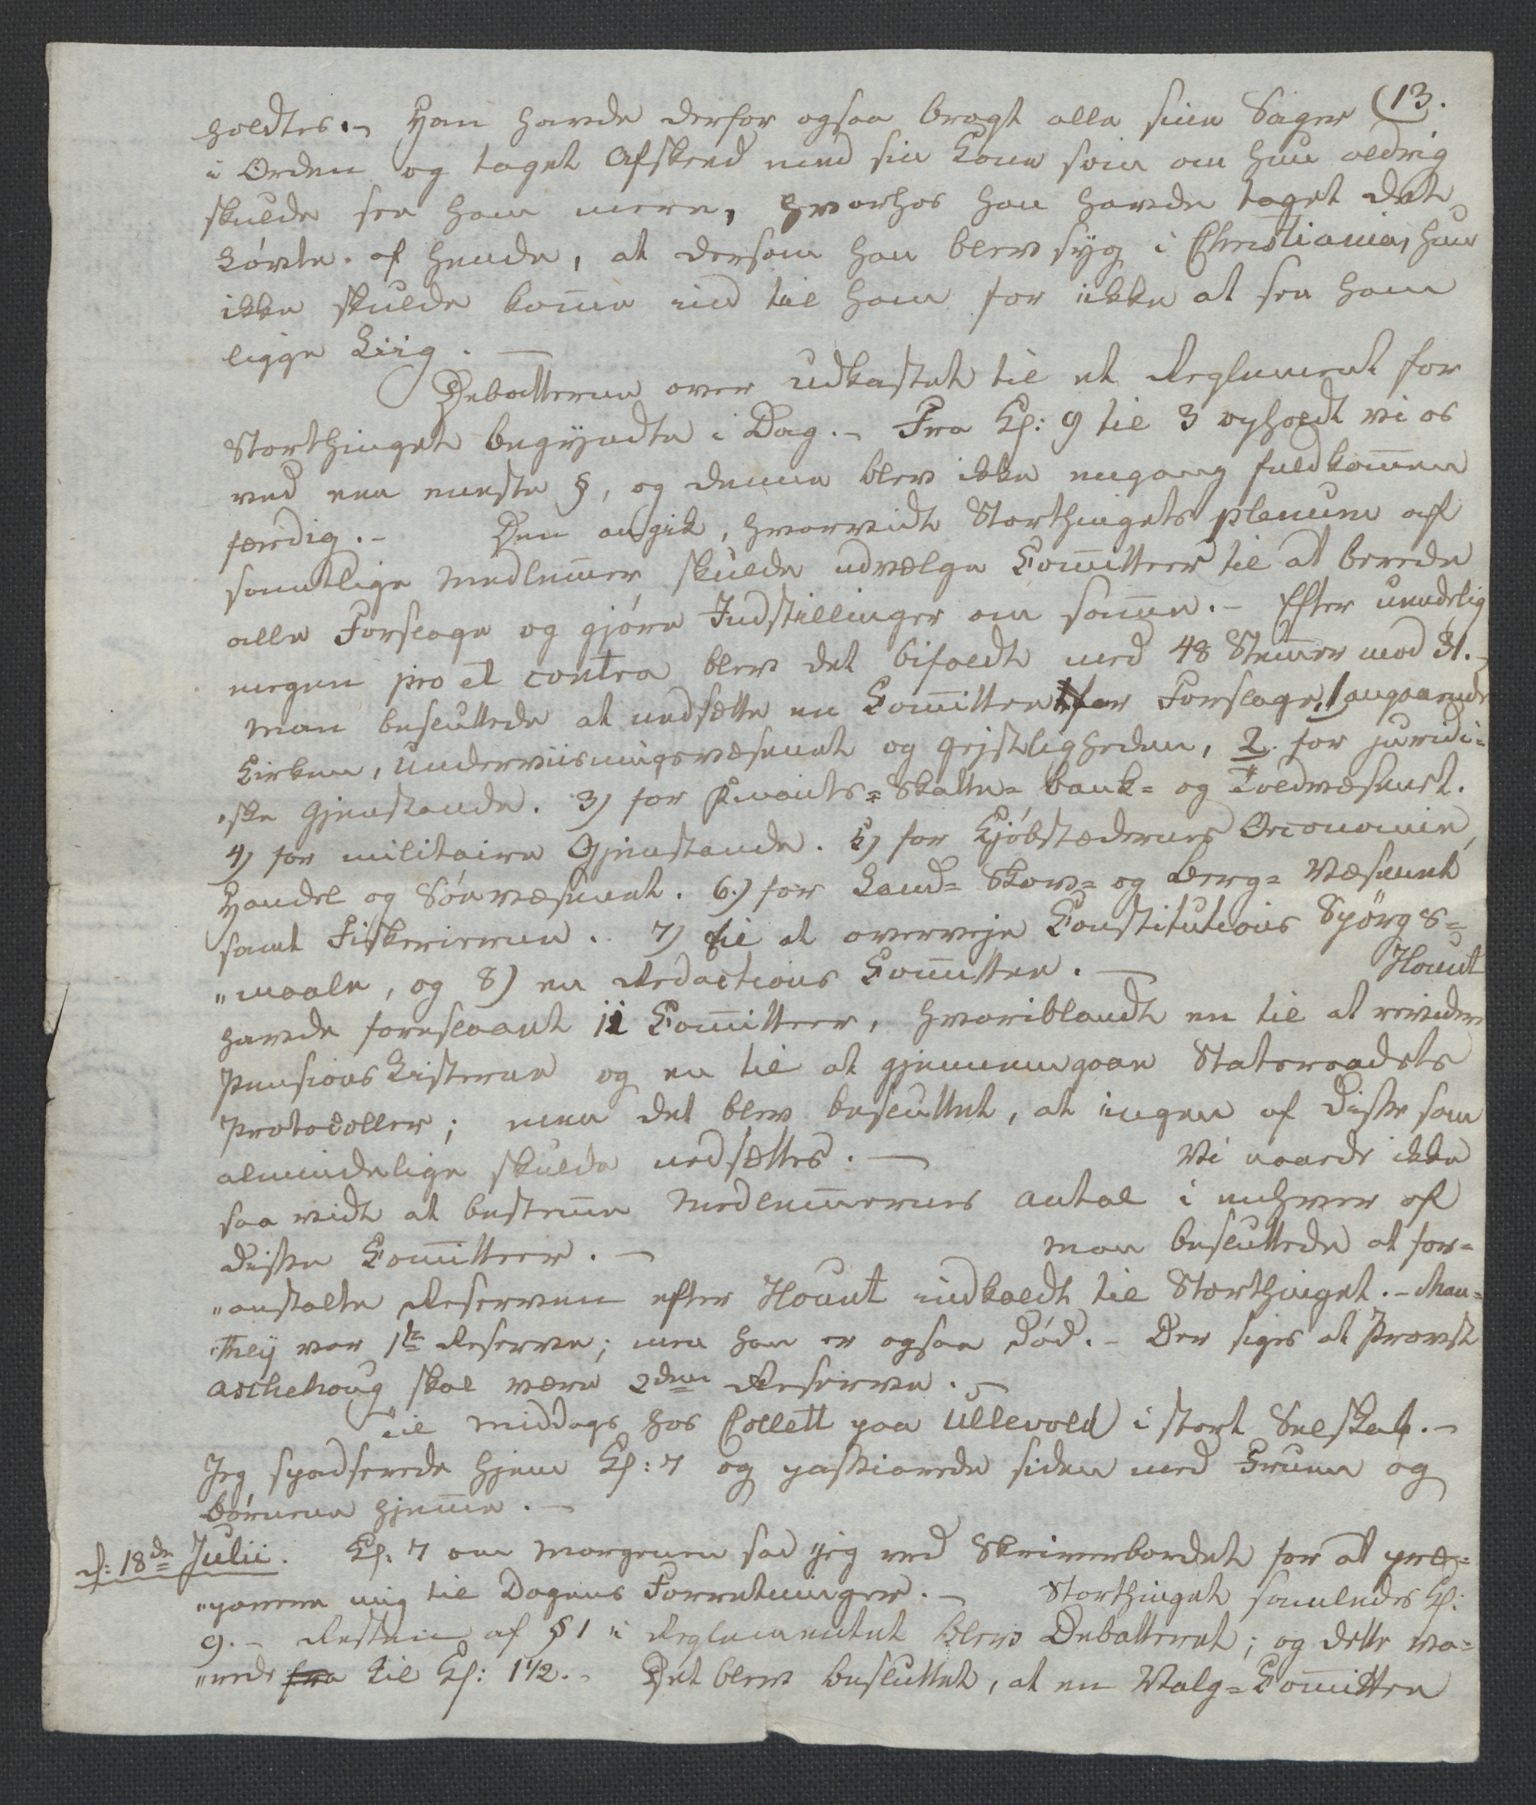 (13.
holdtes. – Han havde derfor ogsaa bragt alle sine Sager
i Orden og taget Afskeed med sin Kone som om hun aldrig
skulde see ham mere, hvorhos han havde taget det
Løvte af hende, at dersom han blev syg i Christiania, hun
ikke skulde kom̅e ind til ham for ikke at see ham
ligge Liig. –
Debatterne over Udkastet til et Reglement for
Storthinget begyndte i Dag. – Fra Kl: 9 til 3 opholdt vi os
ved een eneste §, og denne blev ikke engang fuldkom̅en
færdig. – Den angik, hvorvidt Storthingets plenum af
samtlige Medlem̅er skulde udvælge Com̅itteer til at berede
alle Forslage og gjøre Indstillinger om sam̅e. – Efter uendelig
megen pro et contra blev det bifaldt med 48 Stem̅er mod 31. –
Man besluttede at nedsætte en Com̅ittee for Forslage 1) angaaende
Kirken, Underviisningsvæsenet og Gejstligheden, 2. for juridi-
ske Gjenstande. 3) for Finants- Skatte- bank- og Toldvæsenet.
4) for militaire Gjenstande. 5) for Kjøbstædernes Oeconomie,
Handel og Søevæsenet. 6.) for Land- Skov- og Berg- Væsenet
samt Fiskerierne. 7) til at overveje Constitutions Spörgs-
"maale, og 8) en Redactions Com̅ittee. – Hount
havde foreslaaet 11 Com̅itteer, hvoriblandt en til at revidere
Pensions Listerne og en til at gjennemgaae Statsraadets
Protocoller; men det blev besluttet, at ingen af disse som
almindelige skulde nedsættes. – Vi naaede ikke
saa vidt at bestem̅e Medlem̅ernes Antal i enhver af
disse Com̅itteer. – Man besluttede at for-
"anstalte Reserven efter Hount indkaldt til Storthinget. – Man-
they var 1te Reserve; men han er ogsaa død. – Der siges at Provst
Aschehoug skal være 2den Reserve. –
Til Middags hos Collett paa Ullevold i stort Selskab. –
Jeg spadserede hjem Kl: 7 og passiarede siden med Fruen og
Børnene hjem̅e. –
d: 18de Julii. Kl: 7 om Morgenen sad jeg ved Skriverbordet for at præ-
"parere mig til Dagens Forretninger. – Storthinget samledes Kl:
9. – Resten af § 1 i Reglementet blev Debatteret; og dette va-
"rede fra til Kl: 1½. – Det blev besluttet, at en Valg-Com̅ittee